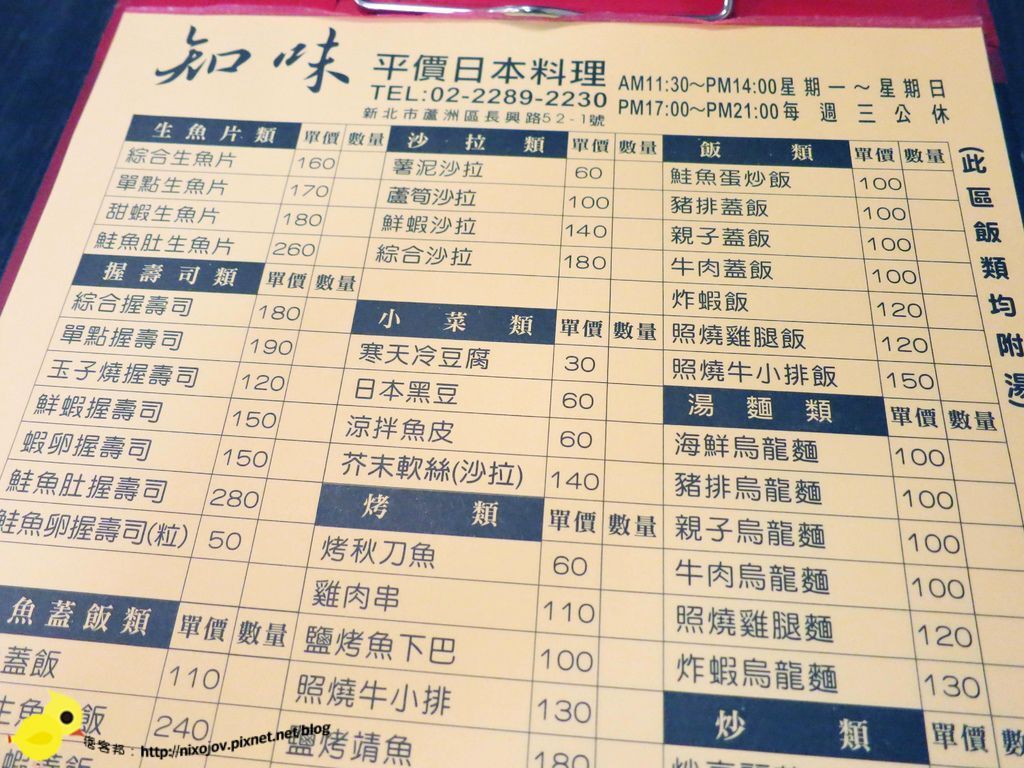 知味 平價日本料理
TEL:02-2289-2230
新北市蘆洲區長興路52-1號
AM11:30～PM14:00 星期一～星期日
PM17:00～PM21:00 每週三公休
生魚片類 單價 數量
綜合生魚片 160
單點生魚片 170
甜蝦生魚片 180
鮭魚肚生魚片 260
握壽司類 單價 數量
綜合握壽司 180
單點握壽司 190
玉子燒握壽司 120
鮮蝦握壽司 150
蝦卵握壽司 150
鮭魚肚握壽司 280
鮭魚卵握壽司(粒) 50
魚蓋飯類 單價 數量
蓋飯 110
生魚 飯 240
沙拉類 單價 數量
薯泥沙拉 60
蘆筍沙拉 100
鮮蝦沙拉 140
綜合沙拉 180
小菜類 單價 數量
寒天冷豆腐 30
日本黑豆 60
涼拌魚皮 60
芥末軟絲(沙拉) 140
烤類 單價 數量
烤秋刀魚 60
雞肉串 110
鹽烤魚下巴 100
照燒牛小排 130
鹽烤鯖魚 180
飯類 單價 數量
鮭魚蛋炒飯 100
豬排蓋飯 100
親子蓋飯 100
牛肉蓋飯 100
炸蝦飯 120
照燒雞腿飯 120
照燒牛小排飯 150
湯麵類 單價 數量
海鮮烏龍麵 100
豬排烏龍麵 100
親子烏龍麵 100
牛肉烏龍麵 100
照燒雞腿麵 120
炸蝦烏龍麵 130
炒類 單價 數
(此區飯類均附湯)
痞客邦：http://nixojov.pixnet.net/blog